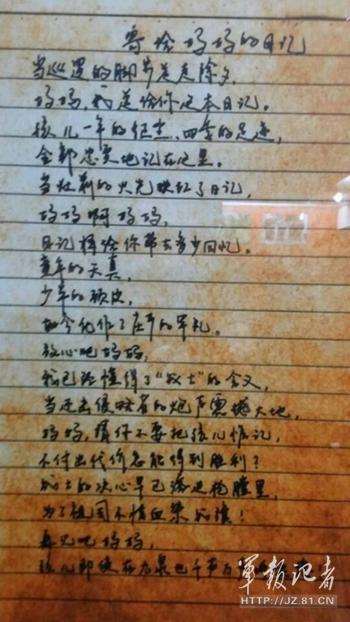 寄给妈妈的日记
当巡逻的脚步走走除夕,
妈妈,我是给你这本日记。
孩儿一年的纪念,四季的足迹,
全部忠实地记在这里。
当灶前的火光映红了日记,
妈妈啊妈妈,
日记将给你带去多少回忆。
童年的天真,
少年的顽皮,
如今化作了庄严的军礼。
放心吧妈妈,
我已经懂得了“战士”的含义,
当还击侵略者的炮声震撼大地,
妈妈,请你不要把孩儿惦记,
不付出代价怎能得到胜利?
战士的决心早已溶进枪膛里,
为了祖国不惜血染的
再见吧妈妈,
孩儿即使在九泉也千声万
軍報记者
HTTP://JZ.81.CN